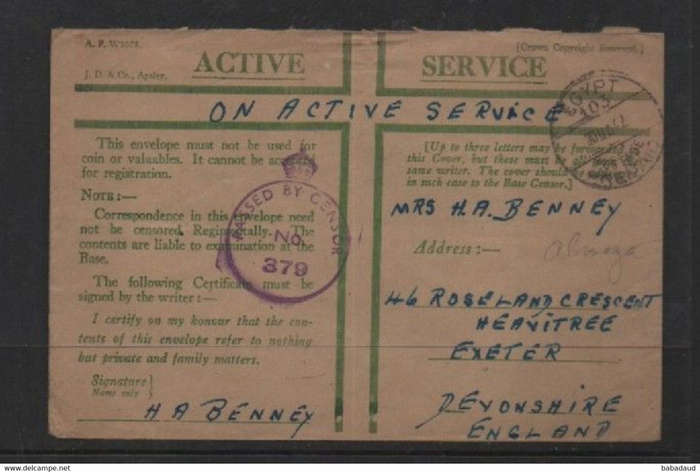 A. F. W3078.
J. D. & Co., Apsley.
ACTIVE SERVICE
[Crown Copyright Reserved.]
ON ACTIVE SERVICE
EGYPT
103
This envelope must not be used for
coin or valuables. It cannot be accepted
for registration.
NOTE:—
Correspondence in this envelope need
not be censored Regimentally. The
contents are liable to examination at the
Base.
The following Certificate must be
signed by the writer:—
I certify on my honour that the con-
tents of this envelope refer to nothing
but private and family matters.
Signature
Name only
H A BENNEY
PASSED BY CENSOR
No.
379
[Up to three letters may be forwarded in
this Cover, but these must be all from the
same writer. The cover should be addressed
in such case to the Base Censor.]
MRS H.A. BENNEY
Address:—
46 ROSELAND CRESCENT
HEAVITREE
EXETER
DEVONSHIRE
ENGLAND
delcampe.net
babadaud